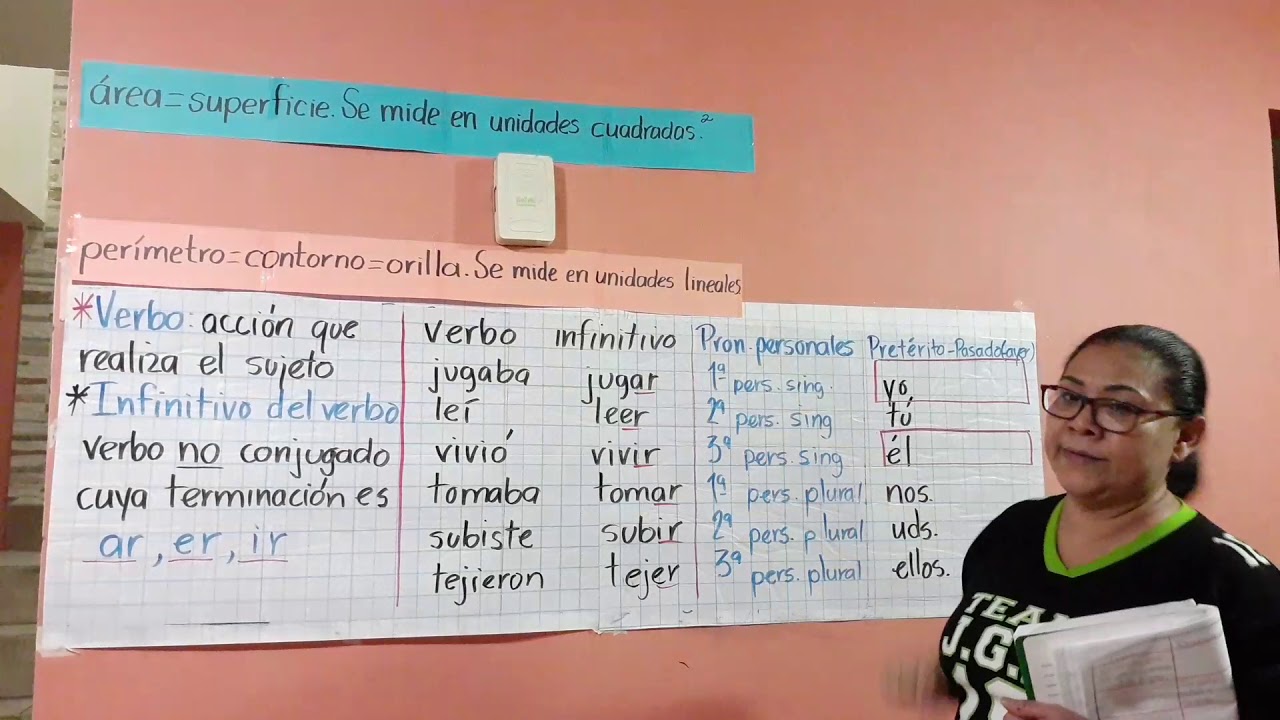 área=superficie. Se mide en unidades cuadradas.²
perímetro=contorno=orilla. Se mide en unidades lineales
*Verbo: acción que
realiza el sujeto
*Infinitivo del verbo
verbo no conjugado
cuya terminación es
ar, er, ir
verbo infinitivo
jugaba jugar
leí leer
vivió vivir
tomaba tomar
subiste subir
tejieron tejer
Pron. personales Pretérito-Pasado(ayer)
1ª pers. sing. yo
2ª pers. sing tú
3ª pers. sing él
1ª pers. plural nos.
2ª pers. plural uds.
3ª pers. plural ellos.
TEA
J.G.